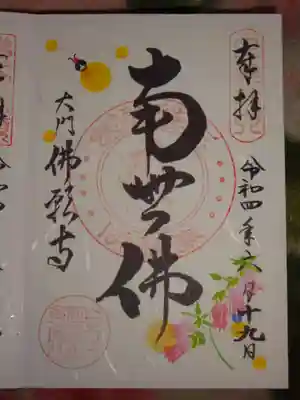 奉拝
令和四年六月十九日
南無佛
大門 佛願寺